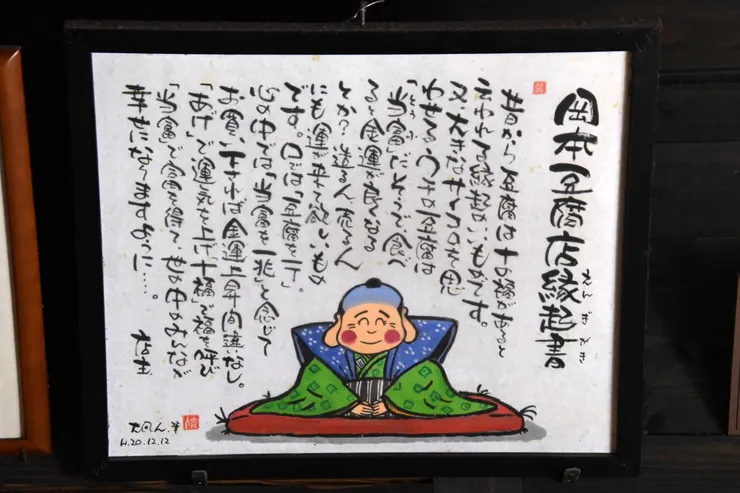 岡本豆腐店縁起書
えんぎがき
昔から豆腐は十の福があると
云われて縁起がいいものです。
又、大きなサイコロにも思
われてる。ウチの豆腐は
「当富」だそうで食べ
とうふ
ると金運が良くなる
とか?造る人売る人
にも運が来て欲しいもの
です。口では「豆腐を一丁」。
心の中では「当富を一兆」と念じて
お買い下されば金運上昇間違いなし。
「あげ」で運気を上げ「十福」で福を呼び
「当富」で富を得て世の中みんなが
幸せになりますように……。
H.20.12.12